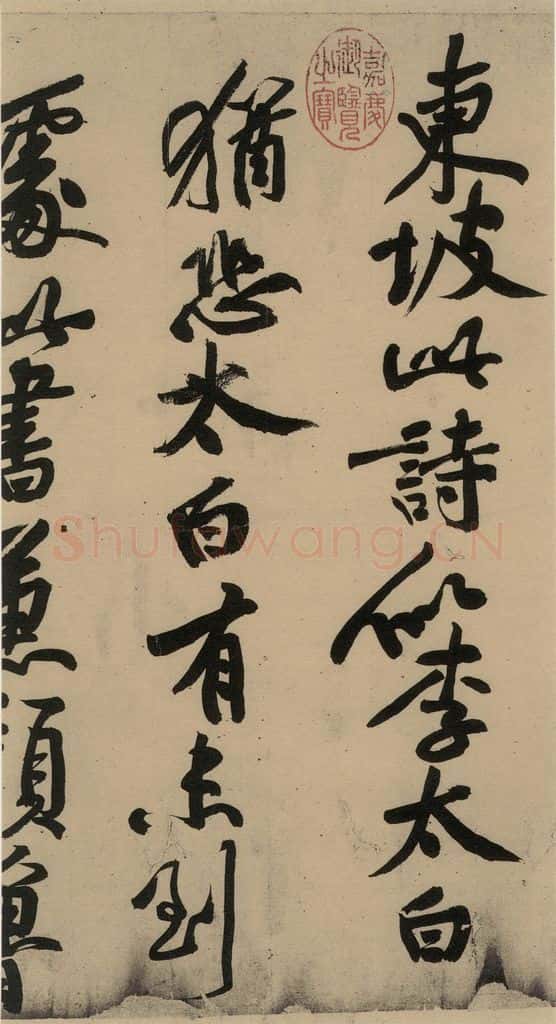 東坡此詩似李太白
猶恐太白有未到
處此書兼顏魯
嘉慶御覽之寶
Shufawang.CN